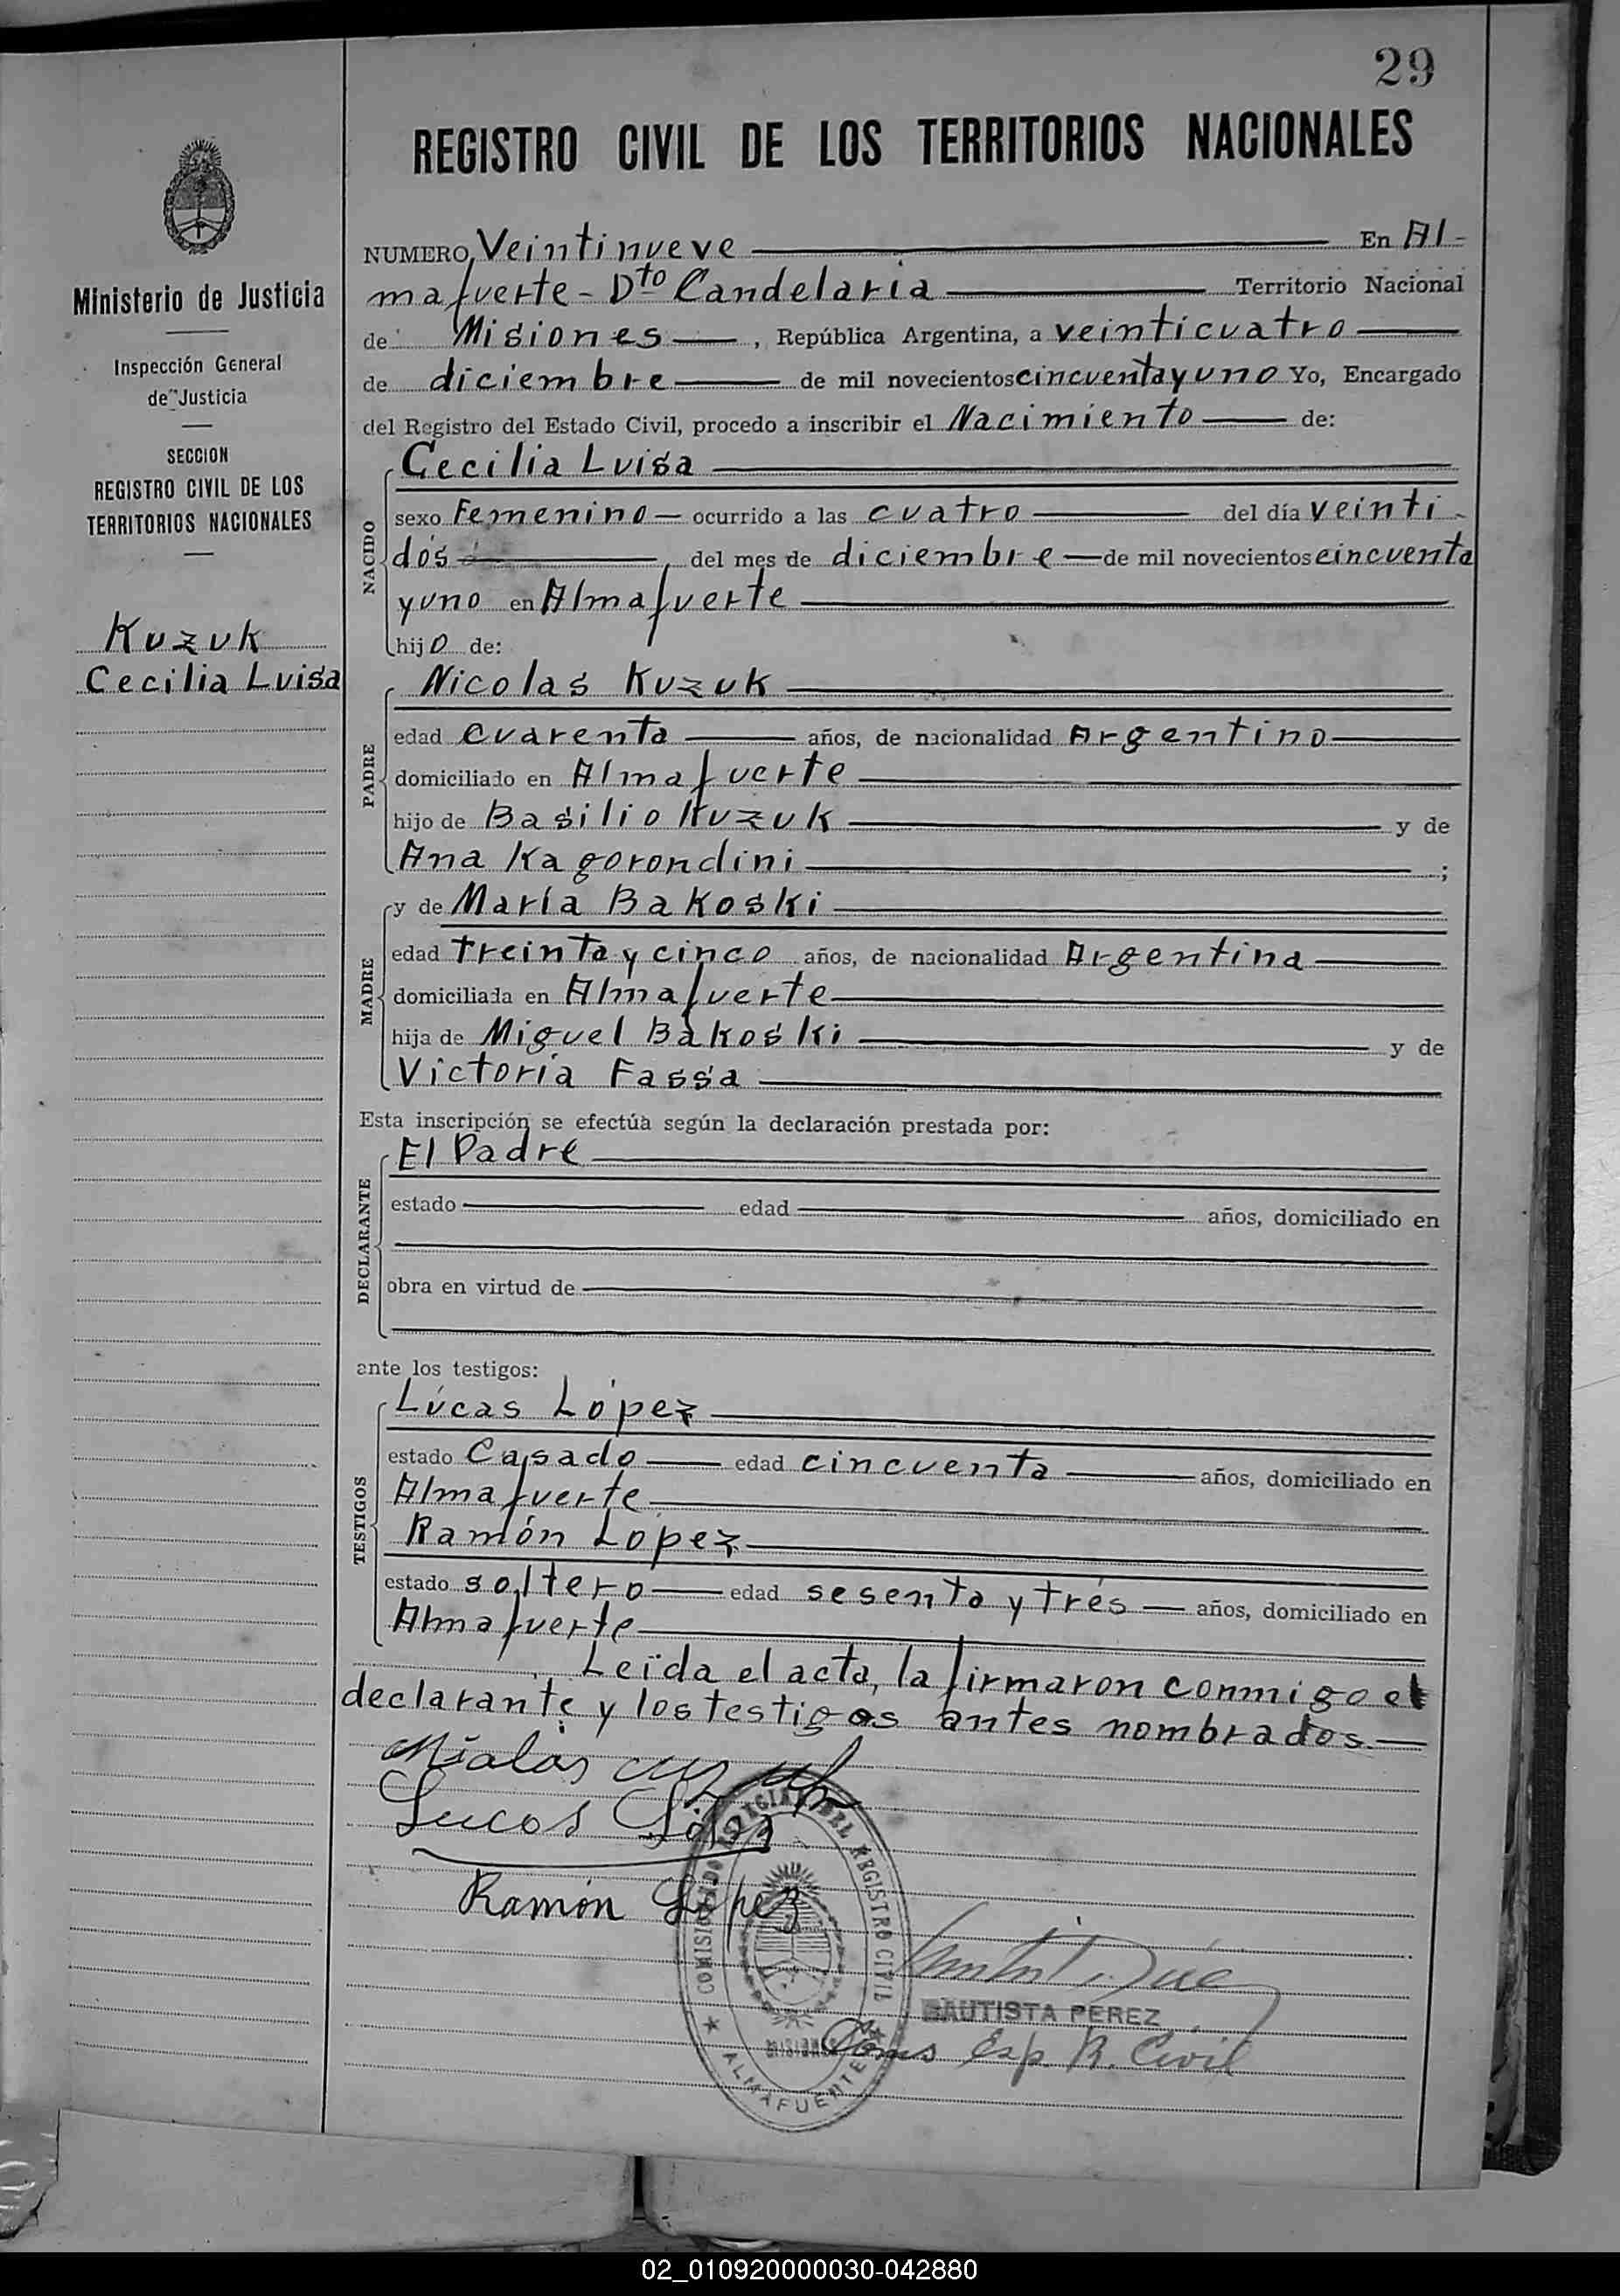 29
REGISTRO CIVIL DE LOS TERRITORIOS NACIONALES
Ministerio de Justicia
Inspección General
de Justicia
SECCION
REGISTRO CIVIL DE LOS
TERRITORIOS NACIONALES
Kuzuk
Cecilia Luisa
NUMERO Veintinueve En Al-
mafuerte - Dto Candelaria Territorio Nacional
de Misiones, República Argentina, a veinticuatro
de diciembre de mil novecientos cincuenta y uno Yo, Encargado
del Registro del Estado Civil, procedo a inscribir el Nacimiento de:
NACIDO
Cecilia Luisa
sexo Femenino ocurrido a las cuatro del día veinti-
dós del mes de diciembre de mil novecientos cincuenta
y uno en Almafuerte
hijo de:
PADRE
Nicolas Kuzuk
edad cuarenta años, de nacionalidad Argentino
domiciliado en Almafuerte
hijo de Basilio Kuzuk y de
Ana Kagorondini ;
MADRE
y de María Bakoski
edad treinta y cinco años, de nacionalidad Argentina
domiciliada en Almafuerte
hija de Miguel Bakoski y de
Victoria Fassa
Esta inscripción se efectúa según la declaración prestada por:
DECLARANTE
El Padre
estado edad años, domiciliado en
obra en virtud de
ante los testigos:
TESTIGOS
Lúcas López
estado Casado edad cincuenta años, domiciliado en
Almafuerte
Ramón López
estado soltero edad sesenta y trés años, domiciliado en
Almafuerte
Leída el acta, la firmaron conmigo el
declarante y los testigos antes nombrados.
Lucas López
Ramón López
COMISIONADO ESPECIAL DEL REGISTRO CIVIL
MISIONES
ALMAFUERTE
BAUTISTA PEREZ
Coms Esp. R. Civil
02_010920000030-042880